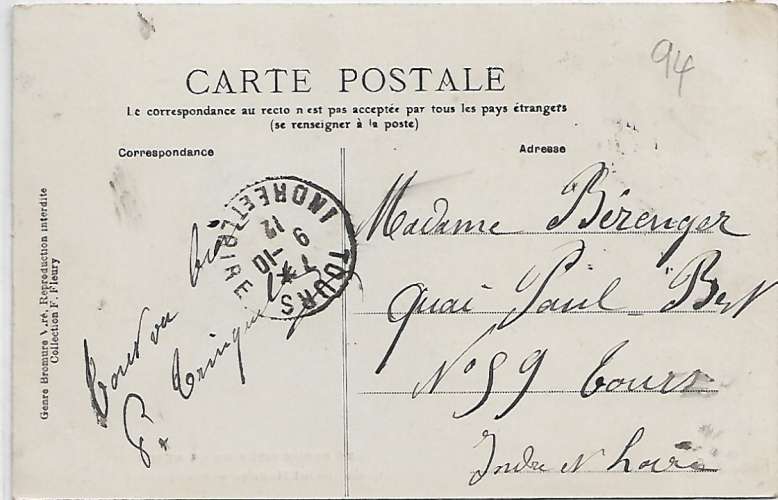 94
CARTE POSTALE
Le correspondance au recto n est pas acceptée par tous les pays étrangers
(se renseigner à la poste)
Correspondance
Adresse
Genre Bromure Viré, Reproduction interdite
Collection F. Fleury
Tout va bien
P. Tringuel
TOURS
INDRE ET LOIRE
7 *
9 -10
12
Madame Bérenger
Quai Paul Bert
No 59 Tours
Indre et Loire